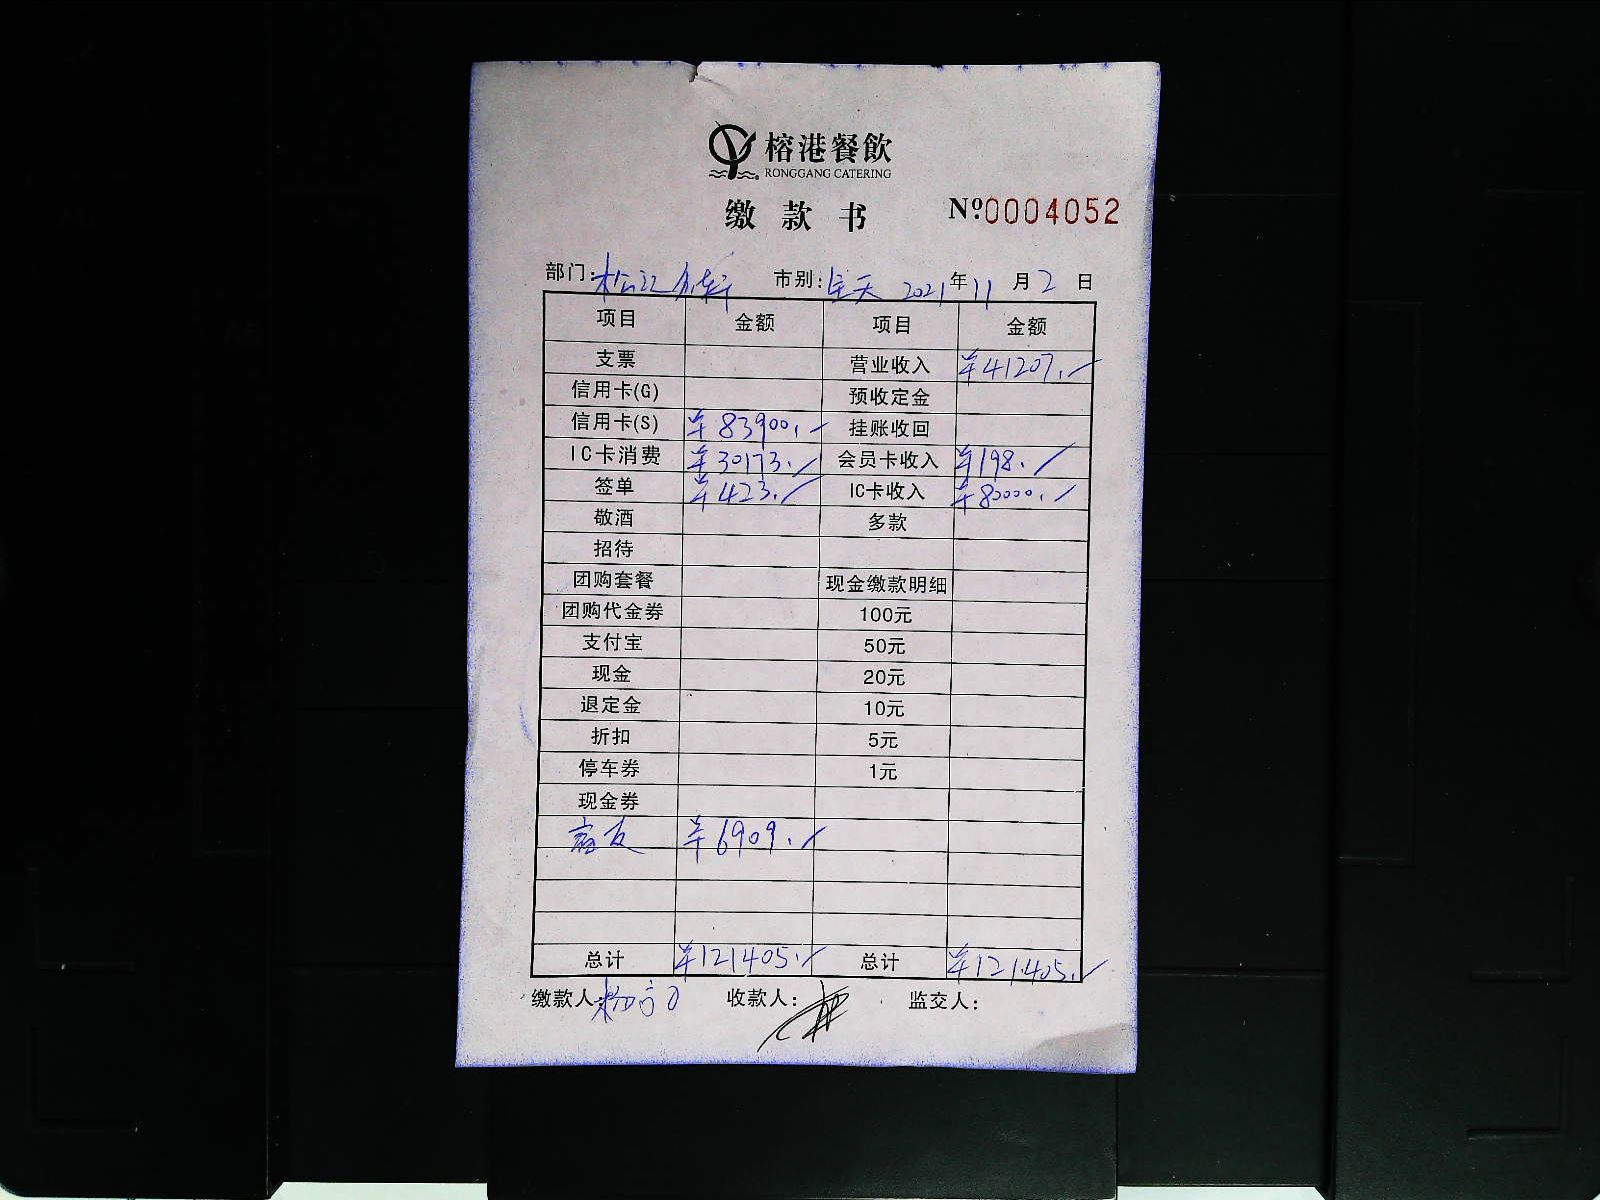 榕港餐飲
RONGGANG CATERING
缴款书 №0004052
部门: 松江 市别: 全天 2021年11月2日
项目 金额 项目 金额
支票 营业收入 ¥41207.-
信用卡(G) 预收定金
信用卡(S) ¥83900.- 挂账收回
IC卡消费 ¥30173.- 会员卡收入 ¥198.-
签单 ¥423.- IC卡收入 ¥80000.-
敬酒 多款
招待
团购套餐 现金缴款明细
团购代金券 100元
支付宝 50元
现金 20元
退定金 10元
折扣 5元
停车券 1元
现金券
¥6909.-
总计 ¥121405.- 总计 ¥121405.-
缴款人: 收款人: 监交人: